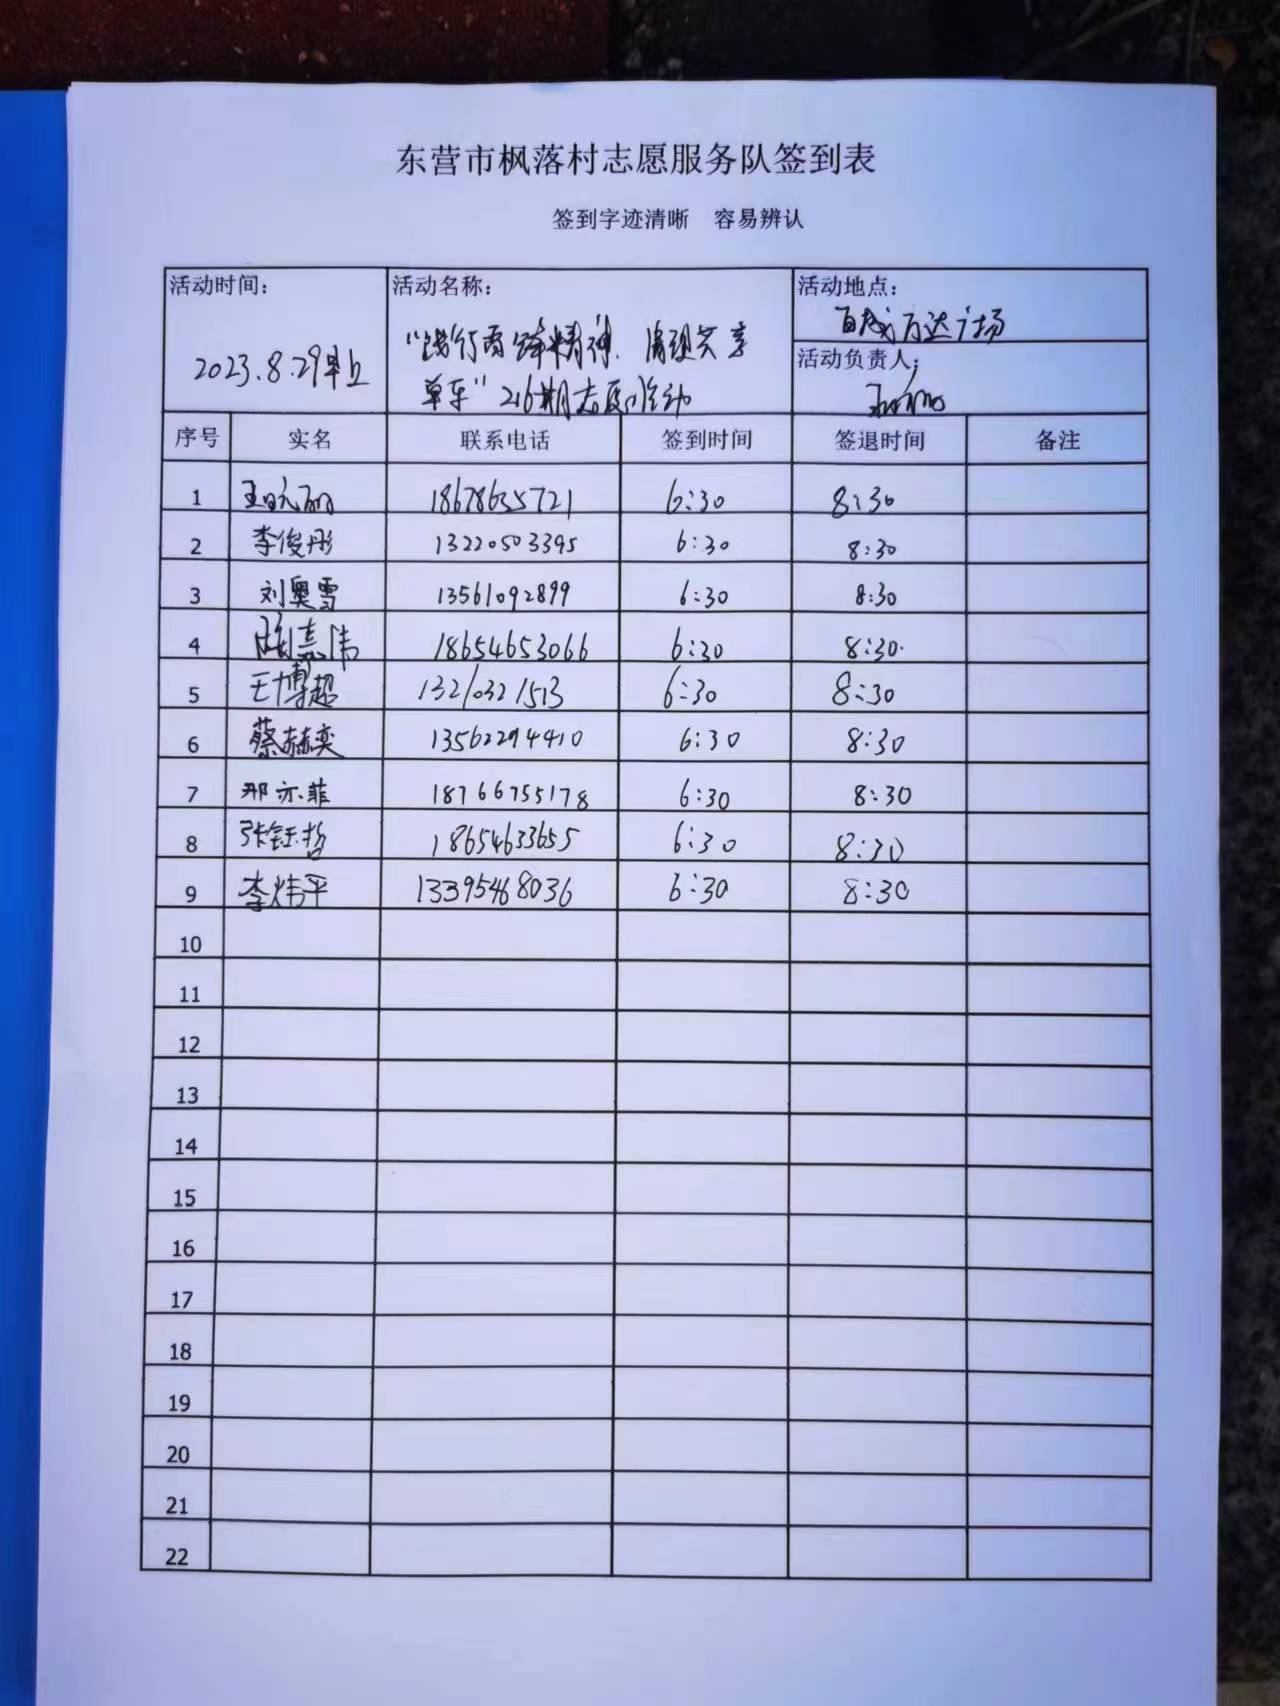 东营市枫落村志愿服务队签到表
签到字迹清晰 容易辨认
活动时间：
2023.8.29早上
活动名称：
“践行雷锋精神、清理共享
单车”216期志愿活动
活动地点：
百成万达广场
活动负责人：
序号 实名 联系电话 签到时间 签退时间 备注
1 18678635721 6:30 8:30
2 李俊彤 13220503395 6:30 8:30
3 刘奥雪 13561092899 6:30 8:30
4 嘉伟 18654653066 6:30 8:30
5 王博超 13210321513 6:30 8:30
6 蔡赫奕 13562294410 6:30 8:30
7 邢亦菲 18766755178 6:30 8:30
8 张钰哲 18654633655 6:30 8:30
9 李炜平 13395468036 6:30 8:30
10
11
12
13
14
15
16
17
18
19
20
21
22